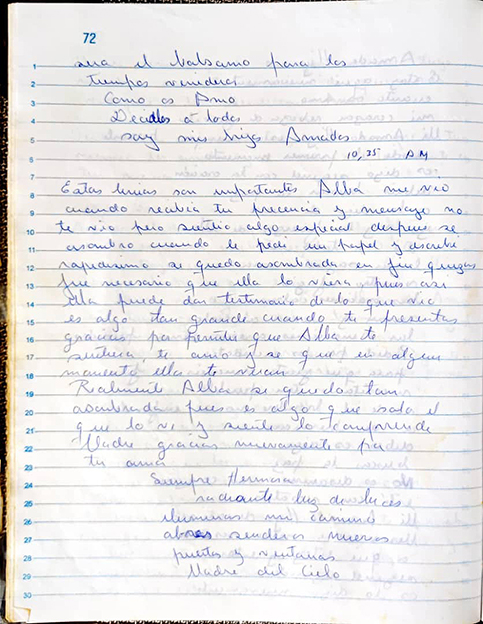 72
sera el balsamo para los
tiempos venideros
Como os Amo
Decidles a todos
soy mis hijos Amados
10,35 P.M
Estas lineas son importantes Alba me vio
cuando recibia tu precencia y mensaje no
te vio pero sintio algo especial despues se
asombro cuando le pedi un papel y escribi
rapidisimo se quedo asombrada en fin quizas
fue necesario que ella lo viera pues asi
ella puede dar testimonio de lo que vio
es algo tan grande cuando te presentas
gracias por permitir que Alba te
sintiera, te amo y se que en algun
momento ella te vera
Realmente Alba se quedo tan
asombrada pues es algo que solo el
que lo ve y siente lo comprende
Madre gracias nuevamente por
tu amor
Siempre Hermosa
radiante luz de luces
iluminas mi camino
abres senderos nuevos
puertas y ventanas
Madre del Cielo